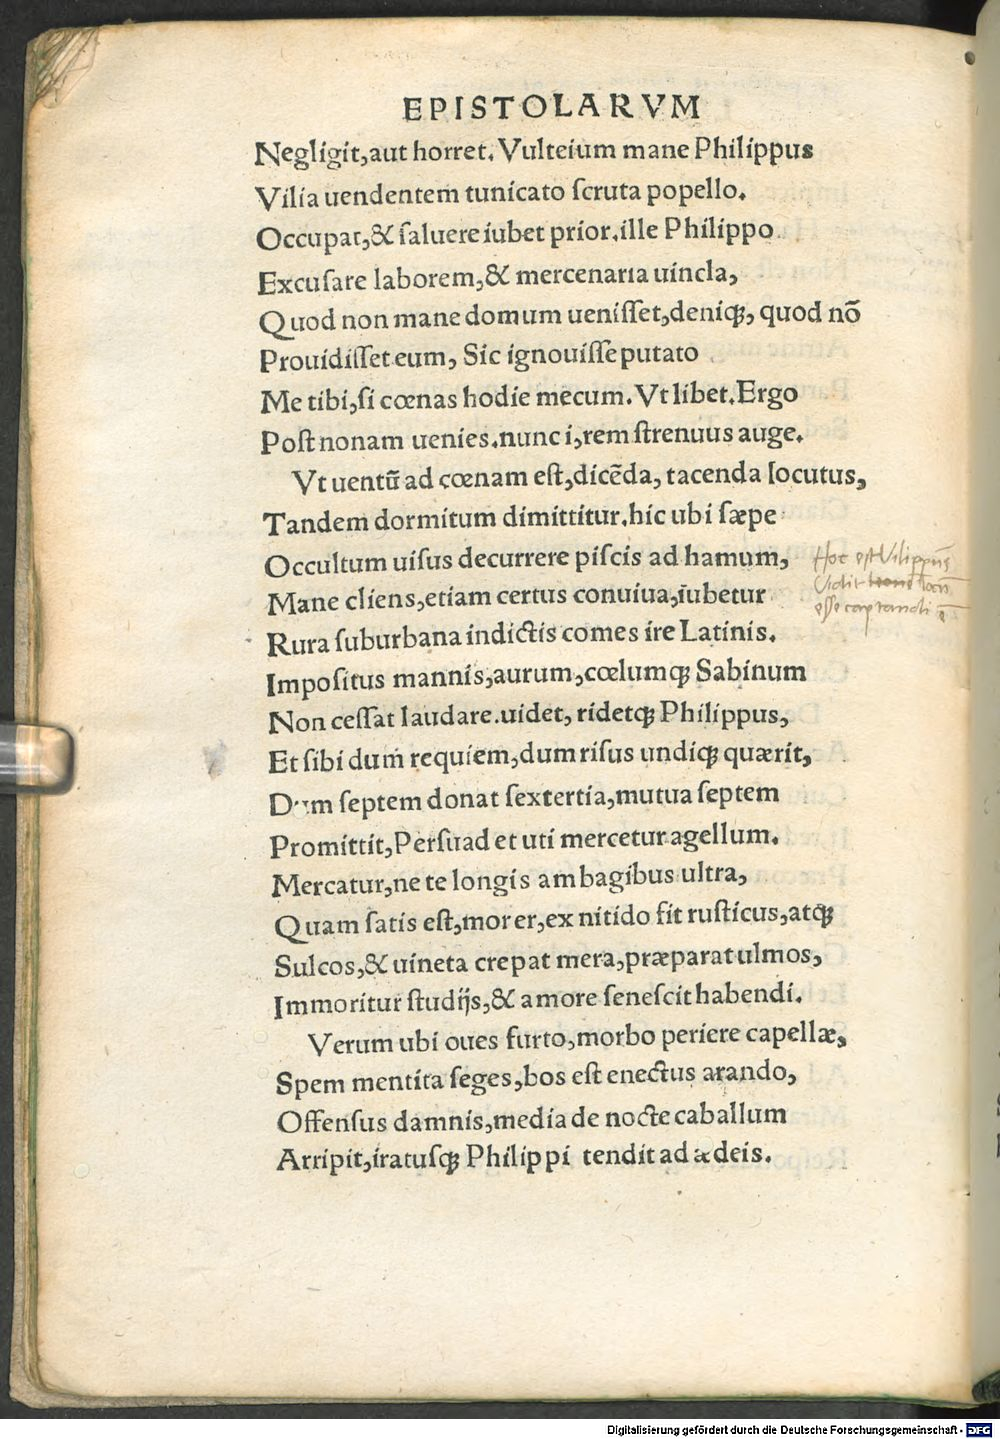 EPISTOLARVM
Negligit,aut horret. Vulteium mane Philippus
Vilia uendentem tunicato ſcruta popello.
Occupat,& ſaluere iubet prior.ille Philippo
Excuſare laborem,& mercenaria uincla,
Quod non mane domum ueniſſet,deniqꝫ, quod nō
Prouidiſſet eum, Sic ignouiſſe putato
Me tibi,ſi cœnas hodie mecum. Vt libet. Ergo
Poſt nonam uenies.nunc i,rem ſtrenuus auge.
Vt uentū ad cœnam eſt,dicēda, tacenda locutus,
Tandem dormitum dimittitur.hic ubi ſæpe
Occultum uiſus decurrere piſcis ad hamum,
Mane cliens,etiam certus conuiua,iubetur
Rura ſuburbana indictis comes ire Latinis.
Impoſitus mannis,aurum,cœlumqꝫ Sabinum
Non ceſſat laudare.uidet, ridetqꝫ Philippus,
Et ſibi dum requiem,dum riſus undiqꝫ quærit,
Dum ſeptem donat ſextertia,mutua ſeptem
Promittit,Perſuadet uti mercetur agellum.
Mercatur,ne te longis ambagibus ultra,
Quam ſatis eſt,morer,ex nitido fit ruſticus,atqꝫ
Sulcos,& uineta crepat mera,præparat ulmos,
Immoritur ſtudijs,& amore ſeneſcit habendi.
Verum ubi oues furto,morbo periere capellæ,
Spem mentita ſeges,bos eſt enectus arando,
Offenſus damnis,media de nocte caballum
Arripit,iratuſqꝫ Philippi tendit ad ædeis.
Hoc est Vilippus
Vidit
esse captandi
Digitalisierung gefördert durch die Deutsche Forschungsgemeinschaft - DFG